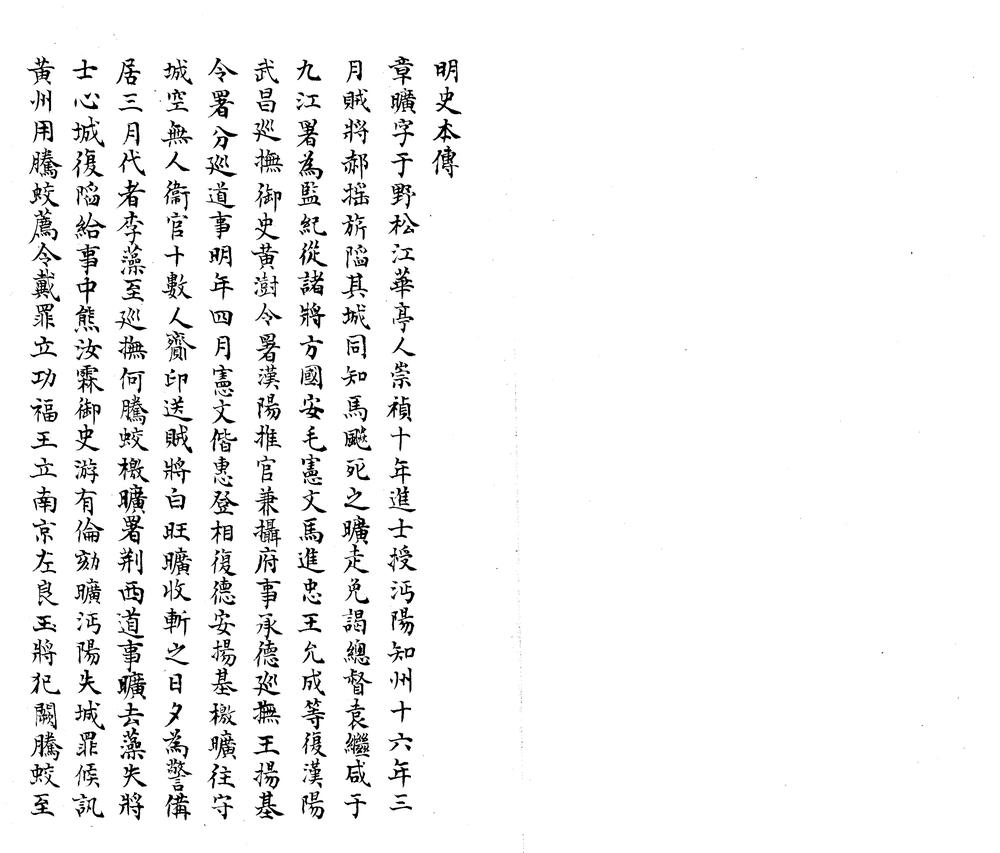 明史本傳
章曠字于野松江華亭人崇禎十年進士授沔陽知州十六年三
月賊將郝搖旂陷其城同知馬飈死之曠走免謁總督袁繼咸于
九江署為監紀從諸將方國安毛憲文馬進忠王允成等復漢陽
武昌巡撫御史黃澍令署漢陽推官兼攝府事承德巡撫王揚基
令署分巡道事明年四月憲文偕惠登相復德安揚基檄曠往守
城空無人衞官十數人齎印送賊將白旺曠收斬之日夕為警備
居三月代者李藻至巡撫何騰蛟檄曠署荆西道事曠去藻失將
士心城復陷給事中熊汝霖御史游有倫劾曠沔陽失城罪候訊
黃州用騰蛟薦令戴罪立功福王立南京左良玉將犯闕騰蛟至